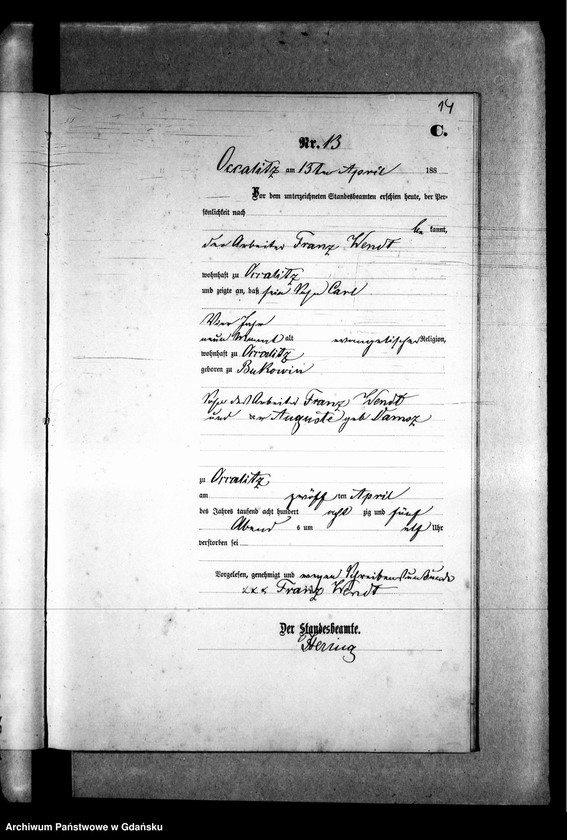 14
C.
Nr. 13
Occalitz am 13ten April 188
Vor dem unterzeichneten Standesbeamten erschien heute, der Per-
sönlichkeit nach
be kannt,
der Arbeiter Franz Wendt
wohnhaft zu Occalitz
und zeigte an, daß sein Sohn Carl
Vier Jahr
neun Monat alt evangelischer Religion,
wohnhaft zu Occalitz
geboren zu Bukowin
Sohn des Arbeiter Franz Wendt
und Auguste geb Damsz
zu Occalitz
am zwölften April
des Jahres tausend acht hundert acht zig und fünf
Abend s um elf Uhr
verstorben sei
Vorgelesen, genehmigt und wegen Schreibensunkunde
xxx Franz Wendt
Der Standesbeamte.
Hering
Archiwum Państwowe w Gdańsku